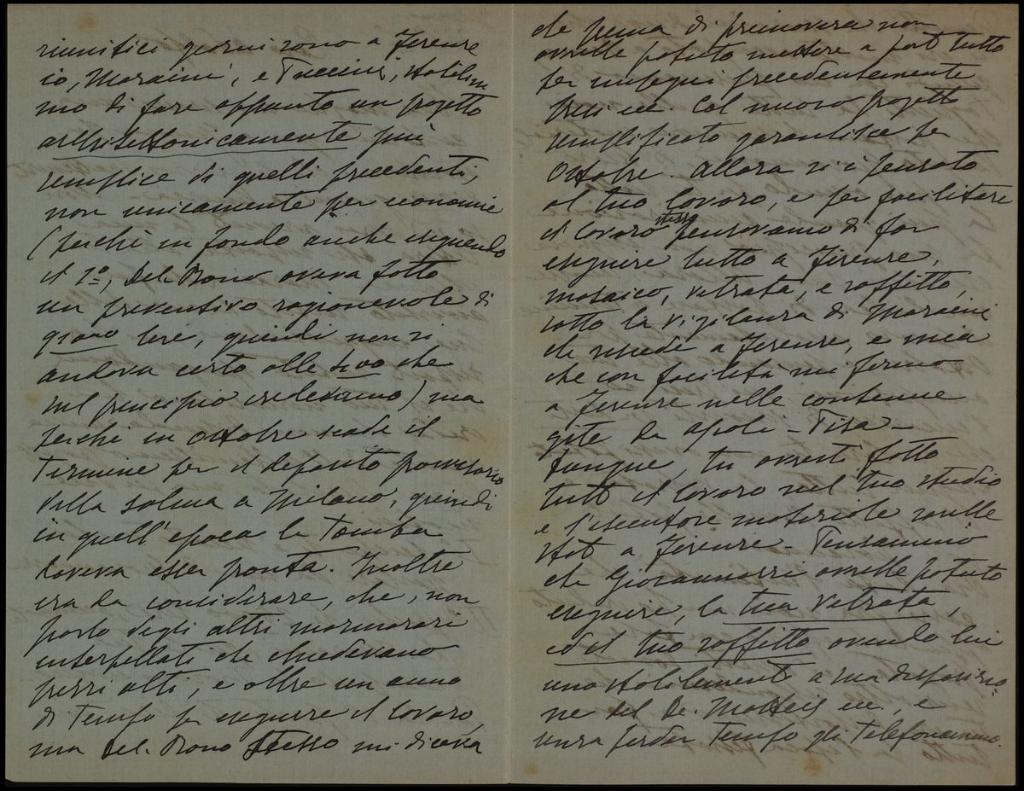 riunitici giorni sono a Firenze
io, Maraini, e Puccini, stabilim
mo di fare appunto un progetto
architettonicamente più
semplice di quelli precedenti,
non unicamente per economie
(perchè in fondo anche eseguendo
il 1º, Del Bono aveva fatto
un preventivo ragionevole di
lire, quindi non si
andava certo alle che
sul principio credevamo) ma
perchè in Ottobre scade il
Termine per il deposito provvisorio
della salma a Milano, quindi
in quell'epoca la Tomba
doveva esser pronta. Inoltre
era da considerare, che, non
parlo degli altri marmorari
interpellati che chiedevano
prezzi alti, e oltre un anno
di Tempo per eseguire il lavoro,
ma Del Bono stesso mi diceva
che prima di primavera non
avrebbe potuto mettere a posto tutto
per impegni precedentemente
presi ecc. Col nuovo progetto
semplificato garantisce per
Ottobre. Allora si è pensato
al tuo lavoro, e per facilitare
il lavoro stesso pensavamo di far
eseguire tutto a Firenze,
mosaico, vetrata, e soffitto,
sotto la vigilanza di Maraini
che risiede a Firenze, e mia
che con facilità mi fermo
a Firenze nelle continue
gite da Pisa -
Dunque, tu avresti fatto
tutto il lavoro nel tuo studio
e l'esecutore materiale sarebbe
stato a Firenze - Pensammo
che Giovannozzi avrebbe potuto
eseguire, la tua vetrata,
ed il tuo soffitto avendo lui
uno stabilimento a sua disposizio
ne del De. Matteis ecc, e
senza perder Tempo gli Telefonammo.